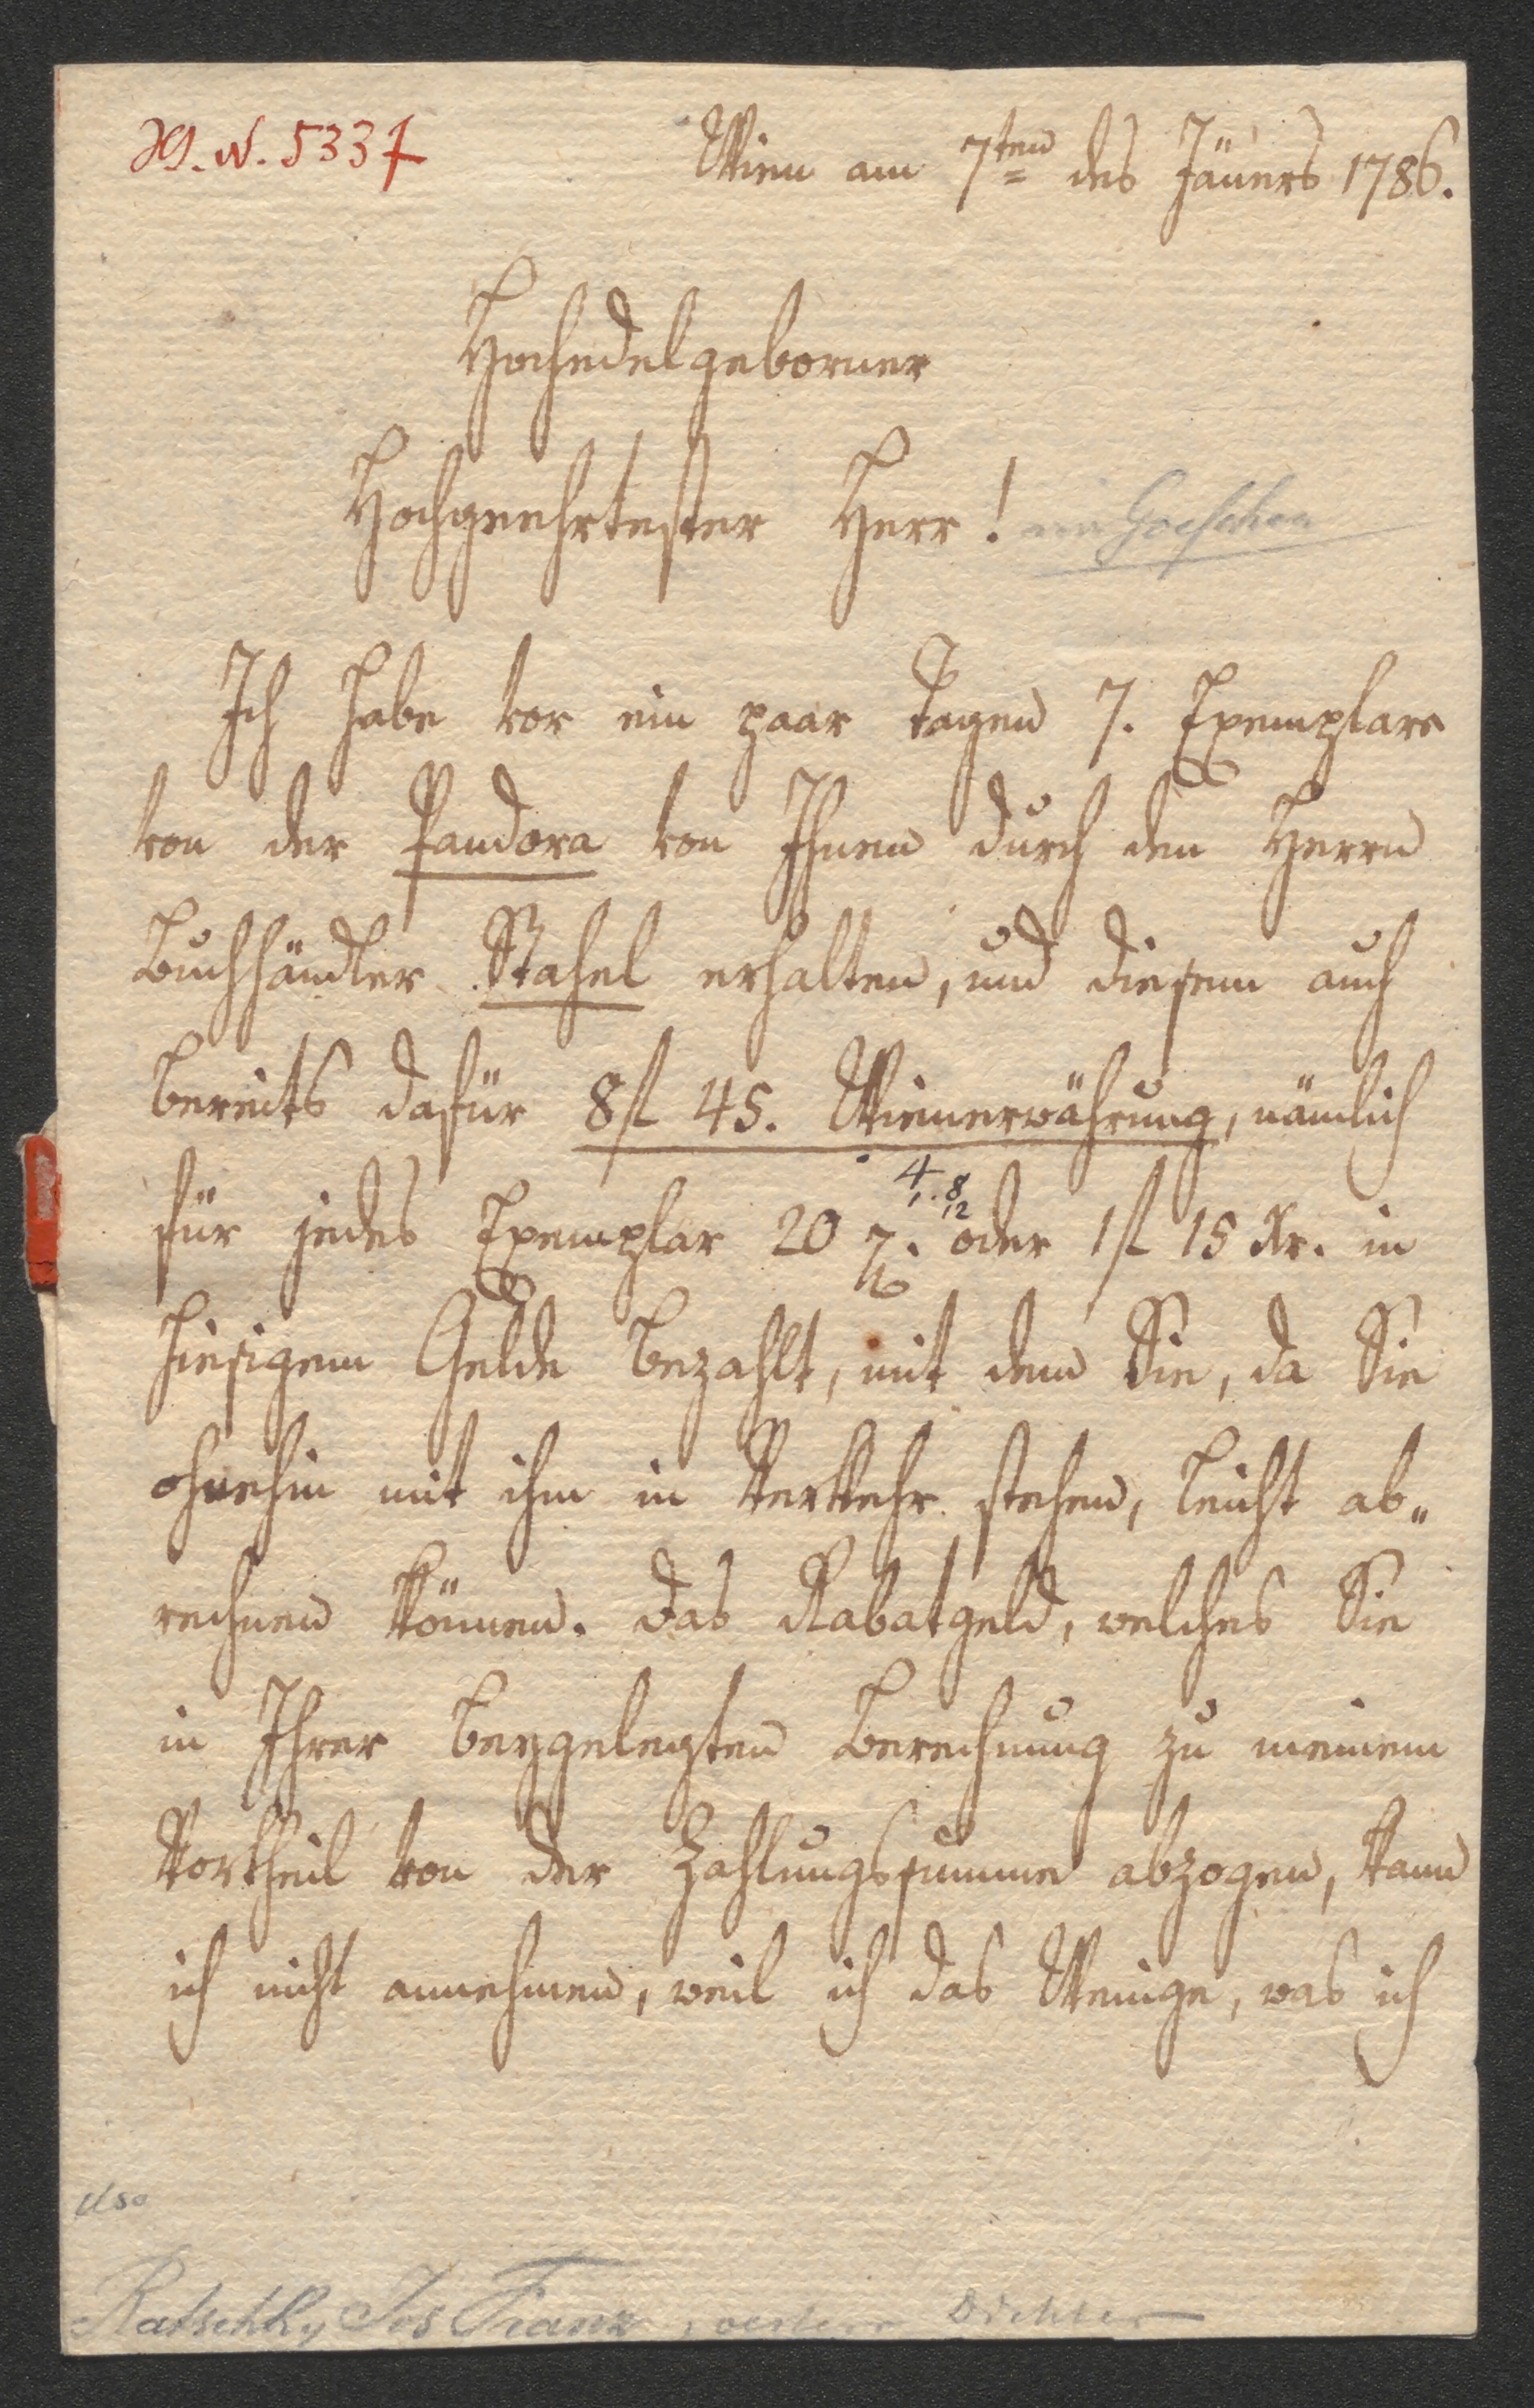 H. N. 5337
Wien am 7ten des Jäners 1786.
Hochedelgeborner
Hochgeehrtester Herr!
Goeschen
Ich habe vor ein paar Tagen 7. Exemplare
von der Pandora von Ihnen durch den Herrn
Buchhändler Stahel erhalten, und diesem auch
bereits dafür 8 fl 45. Wienerwährung, nämlich
für jedes Exemplar 20 g. oder 1 fl 15 Kr. in
hiesigem Gelde bezahlt, mit dem Sie, da Sie
ohnehin mit ihm in Verkehr stehen, leicht ab„
rechnen können. Das Rabatgeld, welches Sie
in Ihrer beygelegten Berechnung zu meinem
Vortheil von der Zahlungssumme abzogen, kann
ich nicht annehmen, weil ich das Wenige, was ich
Ratschky Jos Franz, oesterr Dichter